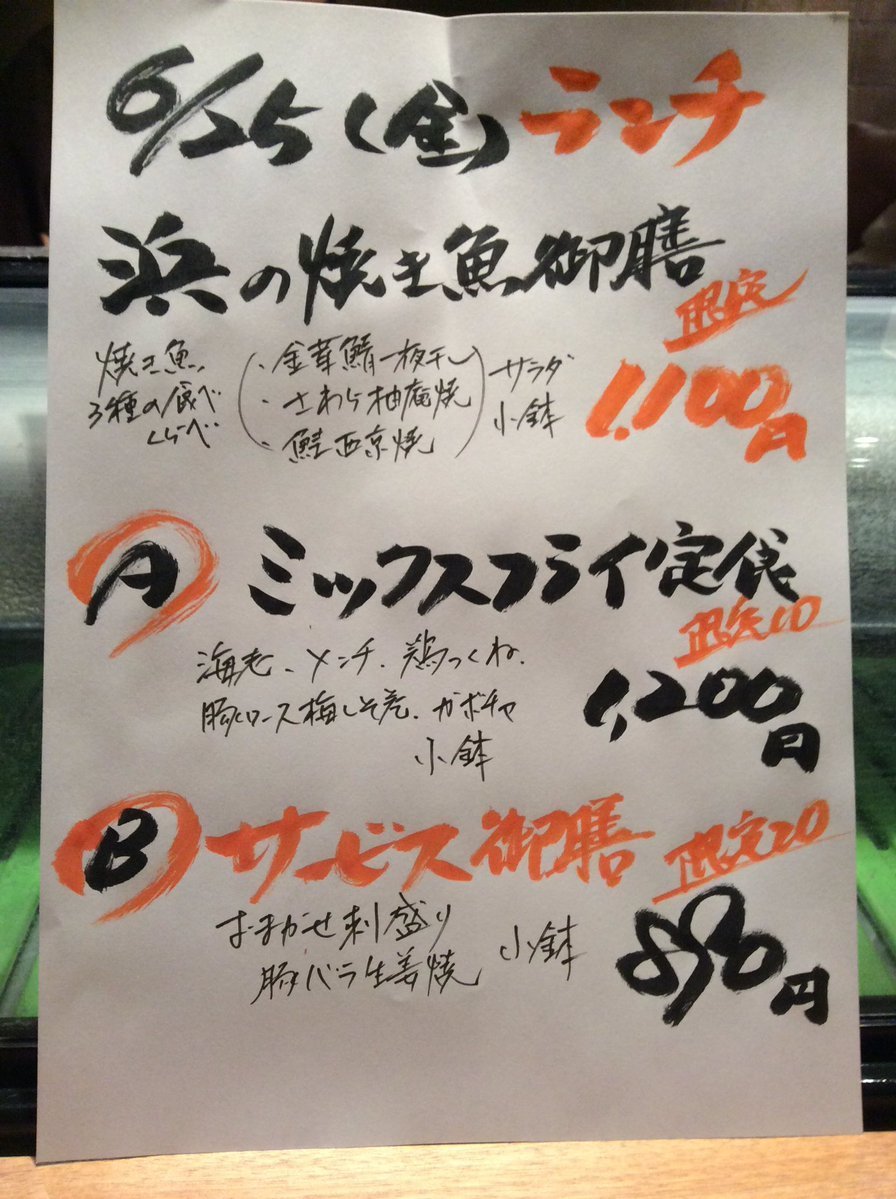 6/25(金)ランチ
浜の焼き魚御膳
限定
焼き魚
3種の食べ
くらべ
・金華鯖一夜干し
・さわら柚庵焼
・鮭西京焼
サラダ
小鉢
1,100円
A ミックスフライ定食
限定10
海老、メンチ、鶏つくね、
豚ロース梅しそ巻、カボチャ
小鉢
1,200円
B サービス御膳
限定20
おまかせ刺盛り
豚バラ生姜焼
小鉢
890円